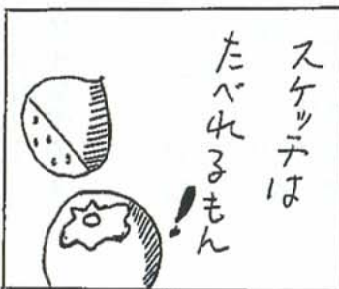 スケッチは
たべれるもん
!